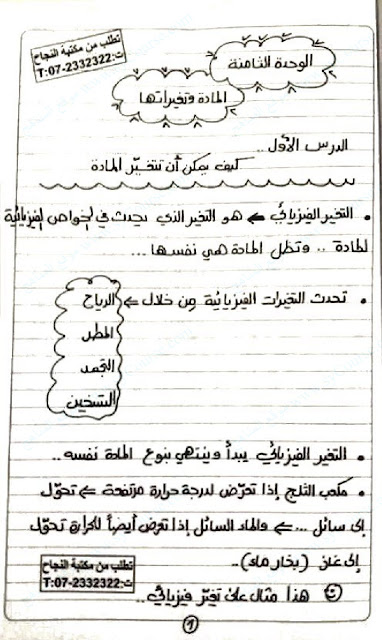 تطلب من مكتبة النجاح
ت:07-2332322:T
الوحدة الثامنة
المادة وتغيراتها
الدرس الأول..
كيف يمكن أن تتغيّر المادة
• التغير الفيزيائي ⇐ هو التغير الذي يحدث في الخواص الفيزيائية
للمادة .. وتظل المادة هي نفسها ...
• تحدث التغيرات الفيزيائية من خلال ⇐ الرياح
المطر
التجمد
التسخين
• التغير الفيزيائي يبدأ وينتهي بنوع المادة نفسه ..
• مكعب الثلج إذا تعرّض لدرجة حرارة مرتفعة ⇐ تحوّل
إلى سائل ... ⇐ والماء السائل إذا تعرض أيضاً للحرارة تحوّل
إلى غاز (بخار ماء) ..
هذا مثال على تغيّر فيزيائي ..
تطلب من مكتبة النجاح
ت:07-2332322:T
1